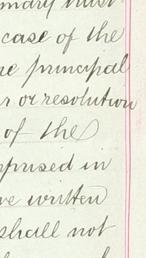 mary must
case of the
he principal
r or resolution
of the
mprised in
ve written
shall not